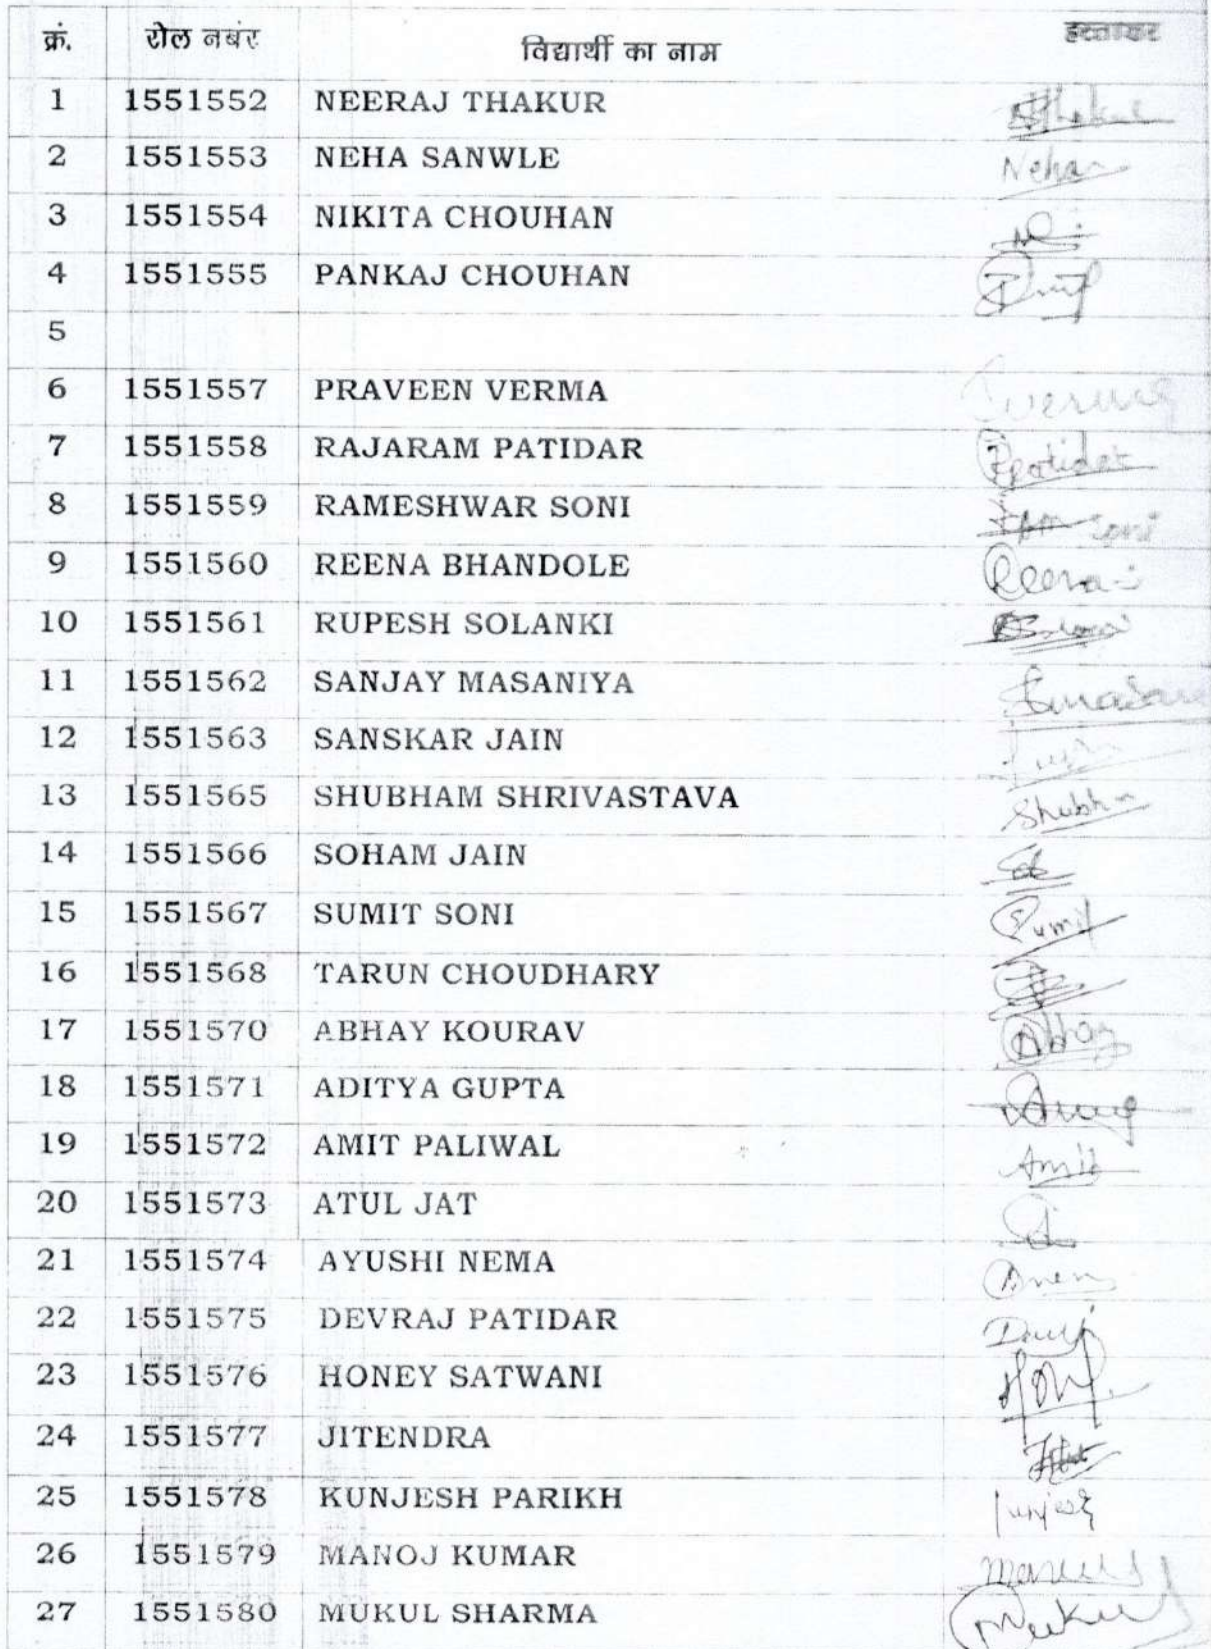 क्रं. रोल नबंर विद्यार्थी का नाम हस्ताक्षर
1 1551552 NEERAJ THAKUR
2 1551553 NEHA SANWLE Neha
3 1551554 NIKITA CHOUHAN
4 1551555 PANKAJ CHOUHAN
5
6 1551557 PRAVEEN VERMA
7 1551558 RAJARAM PATIDAR
8 1551559 RAMESHWAR SONI Soni
9 1551560 REENA BHANDOLE Reena
10 1551561 RUPESH SOLANKI
11 1551562 SANJAY MASANIYA
12 1551563 SANSKAR JAIN
13 1551565 SHUBHAM SHRIVASTAVA
14 1551566 SOHAM JAIN
15 1551567 SUMIT SONI Sumit
16 1551568 TARUN CHOUDHARY
17 1551570 ABHAY KOURAV Abhay
18 1551571 ADITYA GUPTA
19 1551572 AMIT PALIWAL Amit
20 1551573 ATUL JAT
21 1551574 AYUSHI NEMA
22 1551575 DEVRAJ PATIDAR
23 1551576 HONEY SATWANI
24 1551577 JITENDRA
25 1551578 KUNJESH PARIKH
26 1551579 MANOJ KUMAR
27 1551580 MUKUL SHARMA